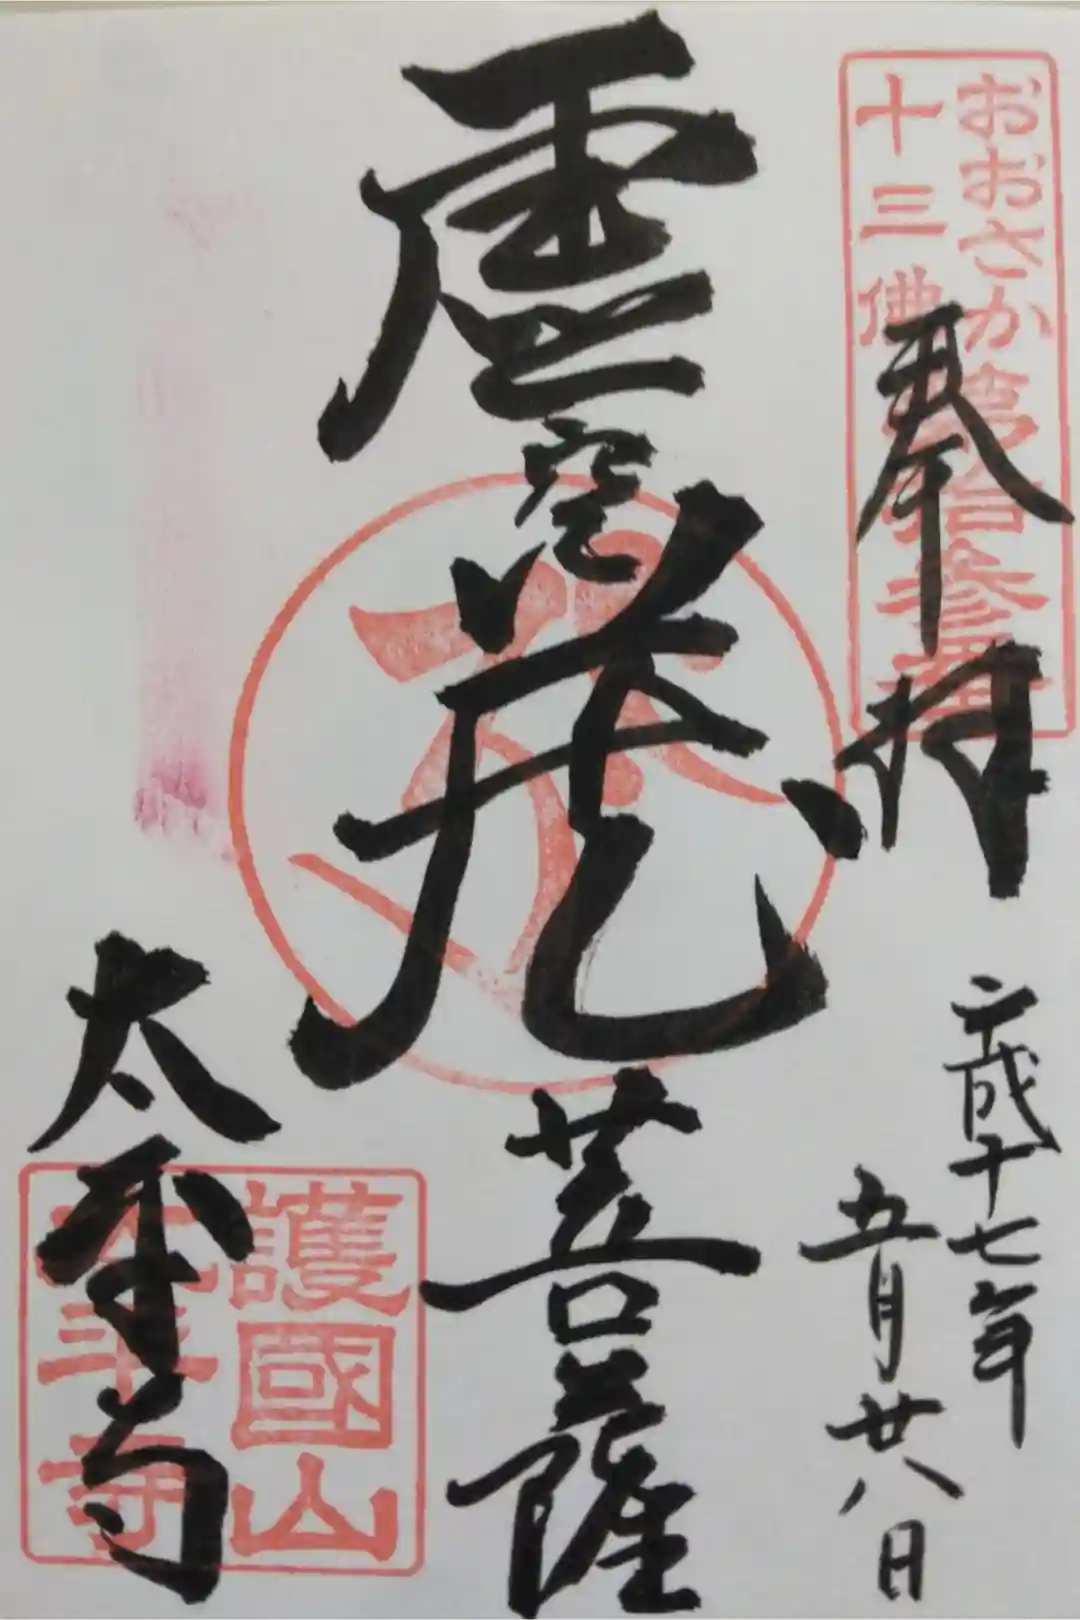 おおさか第拾参番
十三佛
奉拝
平成十七年
五月廿八日
虚空蔵菩薩
護國山
太平寺
太平寺